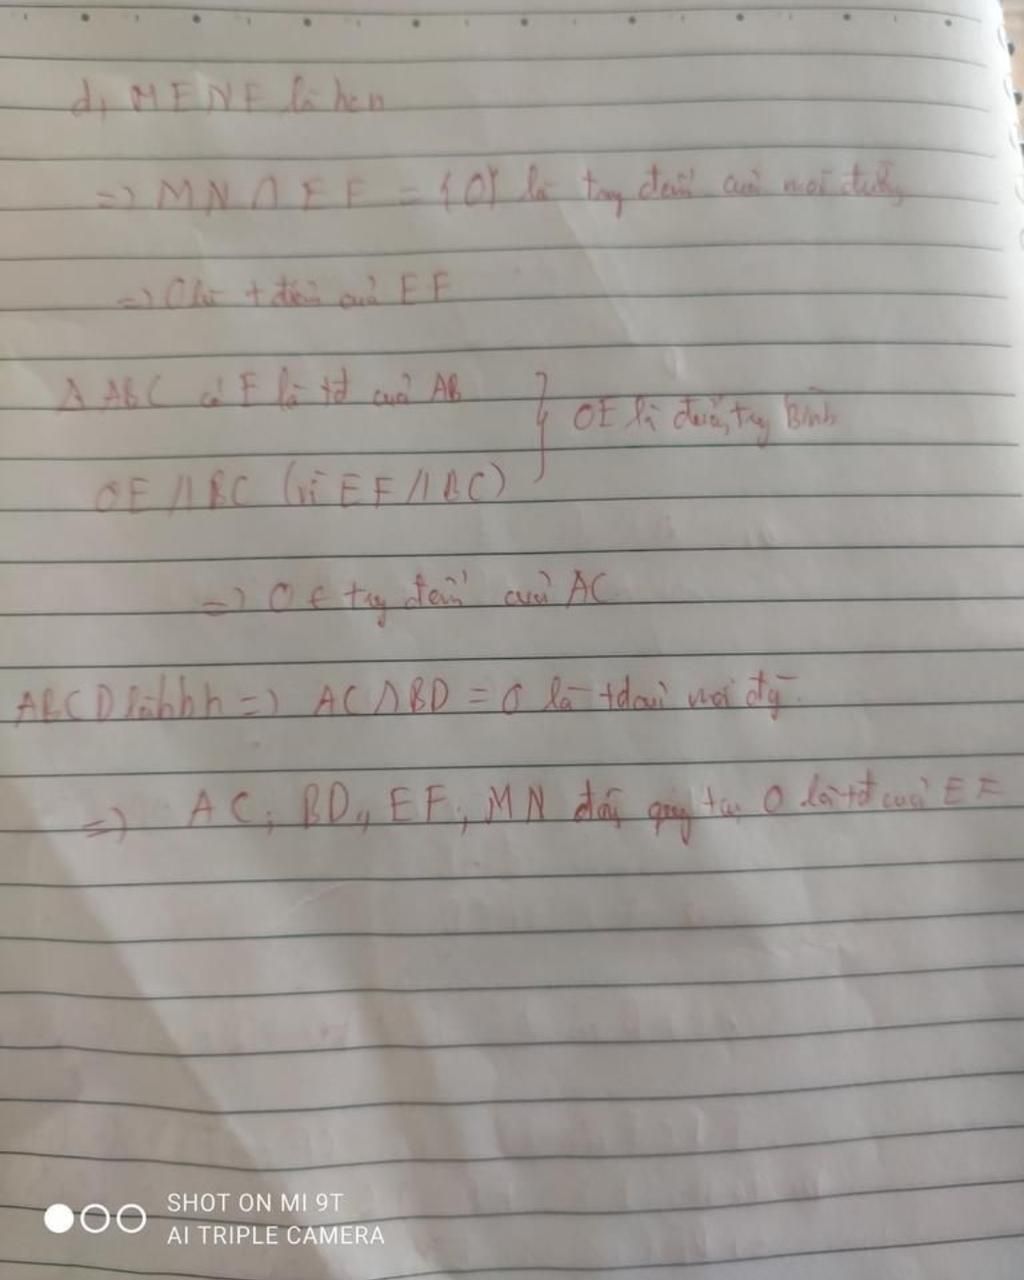 d, MENF là hcn
=> MN ∩ EF = {O} là trung điểm của mỗi đường
=> O là t điểm của EF
Δ ABC có E là tđ của AB
OE // BC (vì EF // BC)
} OE là đường trung bình
=> O là trung điểm của AC
ABCD là hbh => AC ∩ BD = O là tđ của mỗi đg
=> AC; BD, EF; MN đồng quy tại O là tđ của EF
SHOT ON MI 9T
AI TRIPLE CAMERA